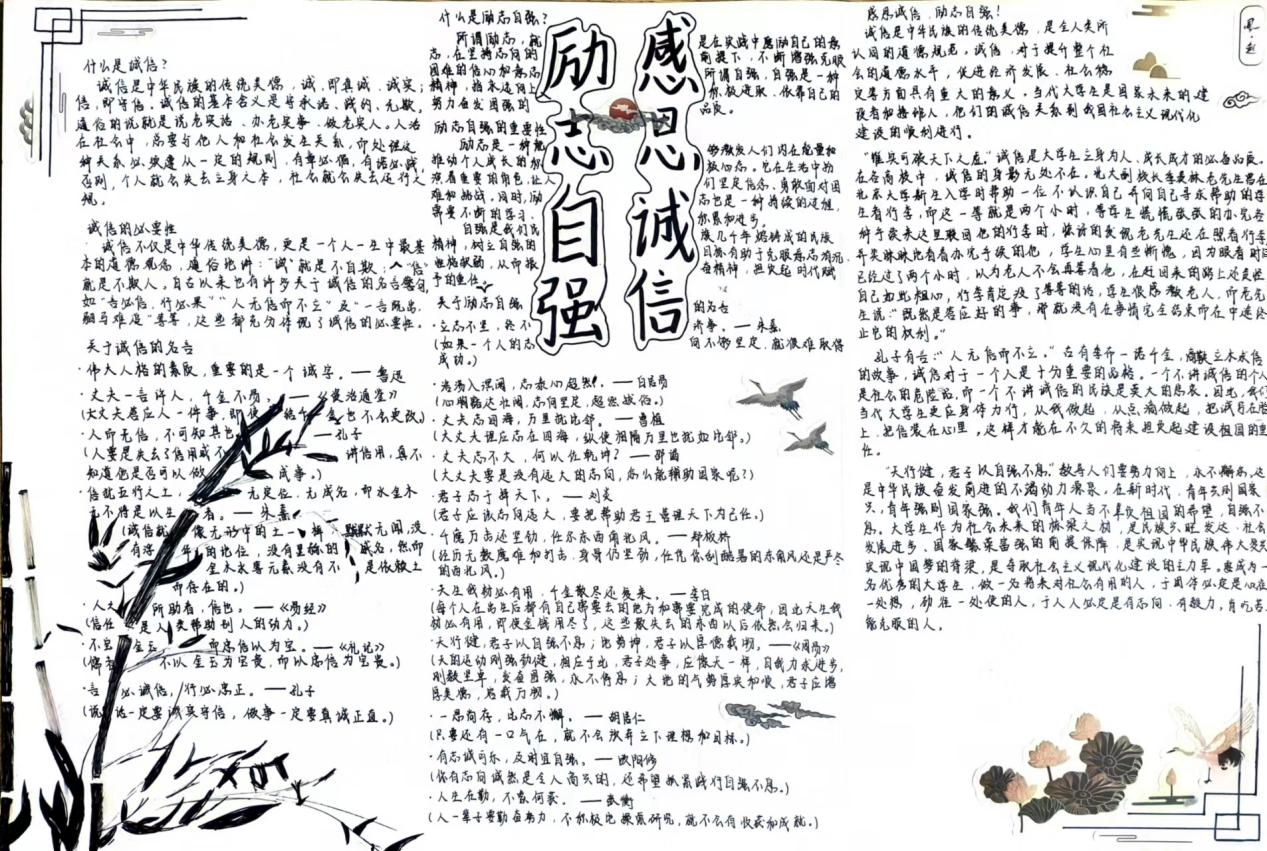 感恩诚信
励志自强
什么是诚信?
诚信是中华民族的传统美德,诚,即真诚、诚实;
信,即守信。诚信的基本含义是守承诺、践约、无欺。
通俗的说就是说老实话、办老实事、做老实人。人活
在社会中,总要与他人和社会发生关系,而处理这
种关系必须遵从一定的规则,有章必循,有诺必践,
否则,个人就会失去立身之本,社会就会失去运行之
规。
诚信的必要性
诚信不仅是中华传统美德,更是一个人一生中最基
本的道德观念,通俗地讲:“诚”就是不自欺;“信”
就是不欺人。自古以来也有许多关于诚信的名言警句,
如“言必信,行必果”“人无信而不立”及“一言既出,
驷马难追”等等,这些都充分体现了诚信的必要性。
关于诚信的名言
·伟大人格的素质,重要的是一个诚字。——鲁迅
·丈夫一言许人,千金不易。——《资治通鉴》
(大丈夫答应人一件事,即使 给千 金也不会更改)
·人而无信,不可知其也 ——孔子
(人要是失去了信用或不 讲信用,真不
知道他是否可以做 成事。)
·信犹五行之土, 无定位,无成名,而水金木
无不待是以生 者。——朱熹
(诚信就 像元形中的土一样,默默无闻,没
有浮 的地位,没有显赫的 成名,然而
金木水等元素没有不 是依赖土
而存在的。)
·人之 所助者,信也。——《易经》
(信任 是人类帮助别人的动力。)
·不宝 金玉 而忠信以为宝。——《礼记》
(儒者 不以金玉为宝贵,而以忠信为宝贵。)
·言 必诚信,行必忠正。——孔子
(说 话一定要诚实守信,做事一定要真诚正直。)
什么是励志自强?
所谓励志,就 是在实践中磨励自己的意
志,在坚持志向的 前提下,不断增强克服
困难的信心和意志 所谓自强,自强是一种
精神,指永远向上 积极进取、依靠自己的
努力奋发图强的 品质。
励志自强的重要性
励志是一种能 够激发人们内在能量和
推动个人成长的 核心态。它在生活中扮
演着重要的角色,让人 们坚定信念,勇敢面对困
难和挑战。同时,励 志也是一种持续的过程,
需要不断的学习、 积累和进步。
自强是我们民 族几千年熔铸成的民族
精神,树立自强的 目标有助于克服意志消沉、
性格软弱,从而振 奋精神,担负起时代赋
予的重任。
关于励志自强 的名言
·立志不坚,终不 济事。——朱熹
(如果一个人的志 向不够坚定,就很难取得
成功。)
·浩荡入溟阔,志泰心超然。——白居易
(心胸豁达壮阔,志向坚定,超悠娱俗。)
·丈夫志四海,万里犹比邻。——曹植
(大丈夫理应志在四海,纵使相隔万里也犹如比邻。)
·丈夫志不大,何以佐乾坤?——邵谒
(大丈夫要是没有远大的志向,怎么能辅助国家呢?)
·君子志于择天下。——刘炎
(君子应该志向远大,要把帮助君王善理天下为己任。)
·千磨万击还坚劲,任尔东西南北风。——郑板桥
(经历无数磨难和打击,身骨仍坚劲,任凭你刮酷暑的东南风还是严冬
的西北风。)
·天生我材必有用,千金散尽还复来。——李白
(每个人在出生后都有自己需要去的地方和需要完成的使命,因此天生我
材必有用,即使金钱用尽了,这些散失去的东西以后依然会归来。)
·天行健,君子以自强不息;地势坤,君子以厚德载物。——《周易》
(天的运动刚强劲健,相应于此,君子处事,应像天一样,自我力求进步,
刚毅坚卓,发奋图强,永不停息;大地的气势厚实和顺,君子应增
厚美德,容载万物。)
·一息尚存,此志不懈。——胡居仁
(只要还有一口气在,就不会放弃立下理想和目标。)
·有志诚可乐,及时宜自强。——欧阳修
(你有志向诚然是令人高兴的,还希望抓紧践行自强不息。)
·人生在勤,不索何获。——张衡
(人一辈子要勤奋努力,不积极地探索研究,就不会有收获和成就。)
感恩诚信,励志自强!
诚信是中华民族的传统美德,是全人类所
认同的道德规范。诚信,对于提升整个社
会的道德水平,促进经济发展、社会稳
定等方面具有重大的意义。当代大学生是国家未来的建
设者和接班人,他们的诚信关系到我国社会主义现代化
建设的顺利进行。
“惟诚可破天下之虚。”诚信是大学生立身为人、成长成才的必备品质。
在各高校中,诚信的身影无处不在。北大副校长季羡林老先生曾在
北京大学新生入学时帮助一位不认识自己并向自己寻求帮助的学
生看行李,而这一等就是两个小时,等学生慌慌张张的办完各
种手续来这里取回他的行李时,惊讶的发现老先生还在照看行李
并笑眯眯地看着办完手续的他,学生心里有些惭愧,因为眼看时间
已经过了两个小时,以为老人不会再等着他,在赶回来的路上还责怪
自己如此粗心,行李肯定没了等等的话,学生很感激老人,而老先
生说:“既然是答应好的事,那就没有在事情完全结束前在中途终
止它的权利。”
孔子有言:“人无信而不立。”古有季布一诺千金,商鞅立木求信
的故事,诚信对于一个人是十分重要的品格。一个不讲诚信的个人
是社会的危险品,而一个不讲诚信的民族是莫大的悲哀。因此,我们
当代大学生更应身体力行,从我做起,从点滴做起,把诚日在脸
上,把信装在心里。这样才能在不久的将来担负起建设祖国的重
任。
“天行健,君子以自强不息。”教导人们要努力向上,永不懈怠,这
是中华民族奋发前进的不竭动力源泉。在新时代,青年兴则国家
兴,青年强则国家强。我们青年人当不辜负祖国的希望,自强不
息。大学生作为社会未来的栋梁之材,是民族兴旺发达、社会
发展进步、国家繁荣富强的前提保障,是实现中华民族伟大复兴
实现中国梦的脊梁,是夺取社会主义现代化建设的主力军。要成为一
名优秀的大学生,做一名将来对社会有用的人,于国体必定是心在
一处想,劲往一处使的人,于人人必定是有志向、有毅力,肯吃苦
能克服的人。